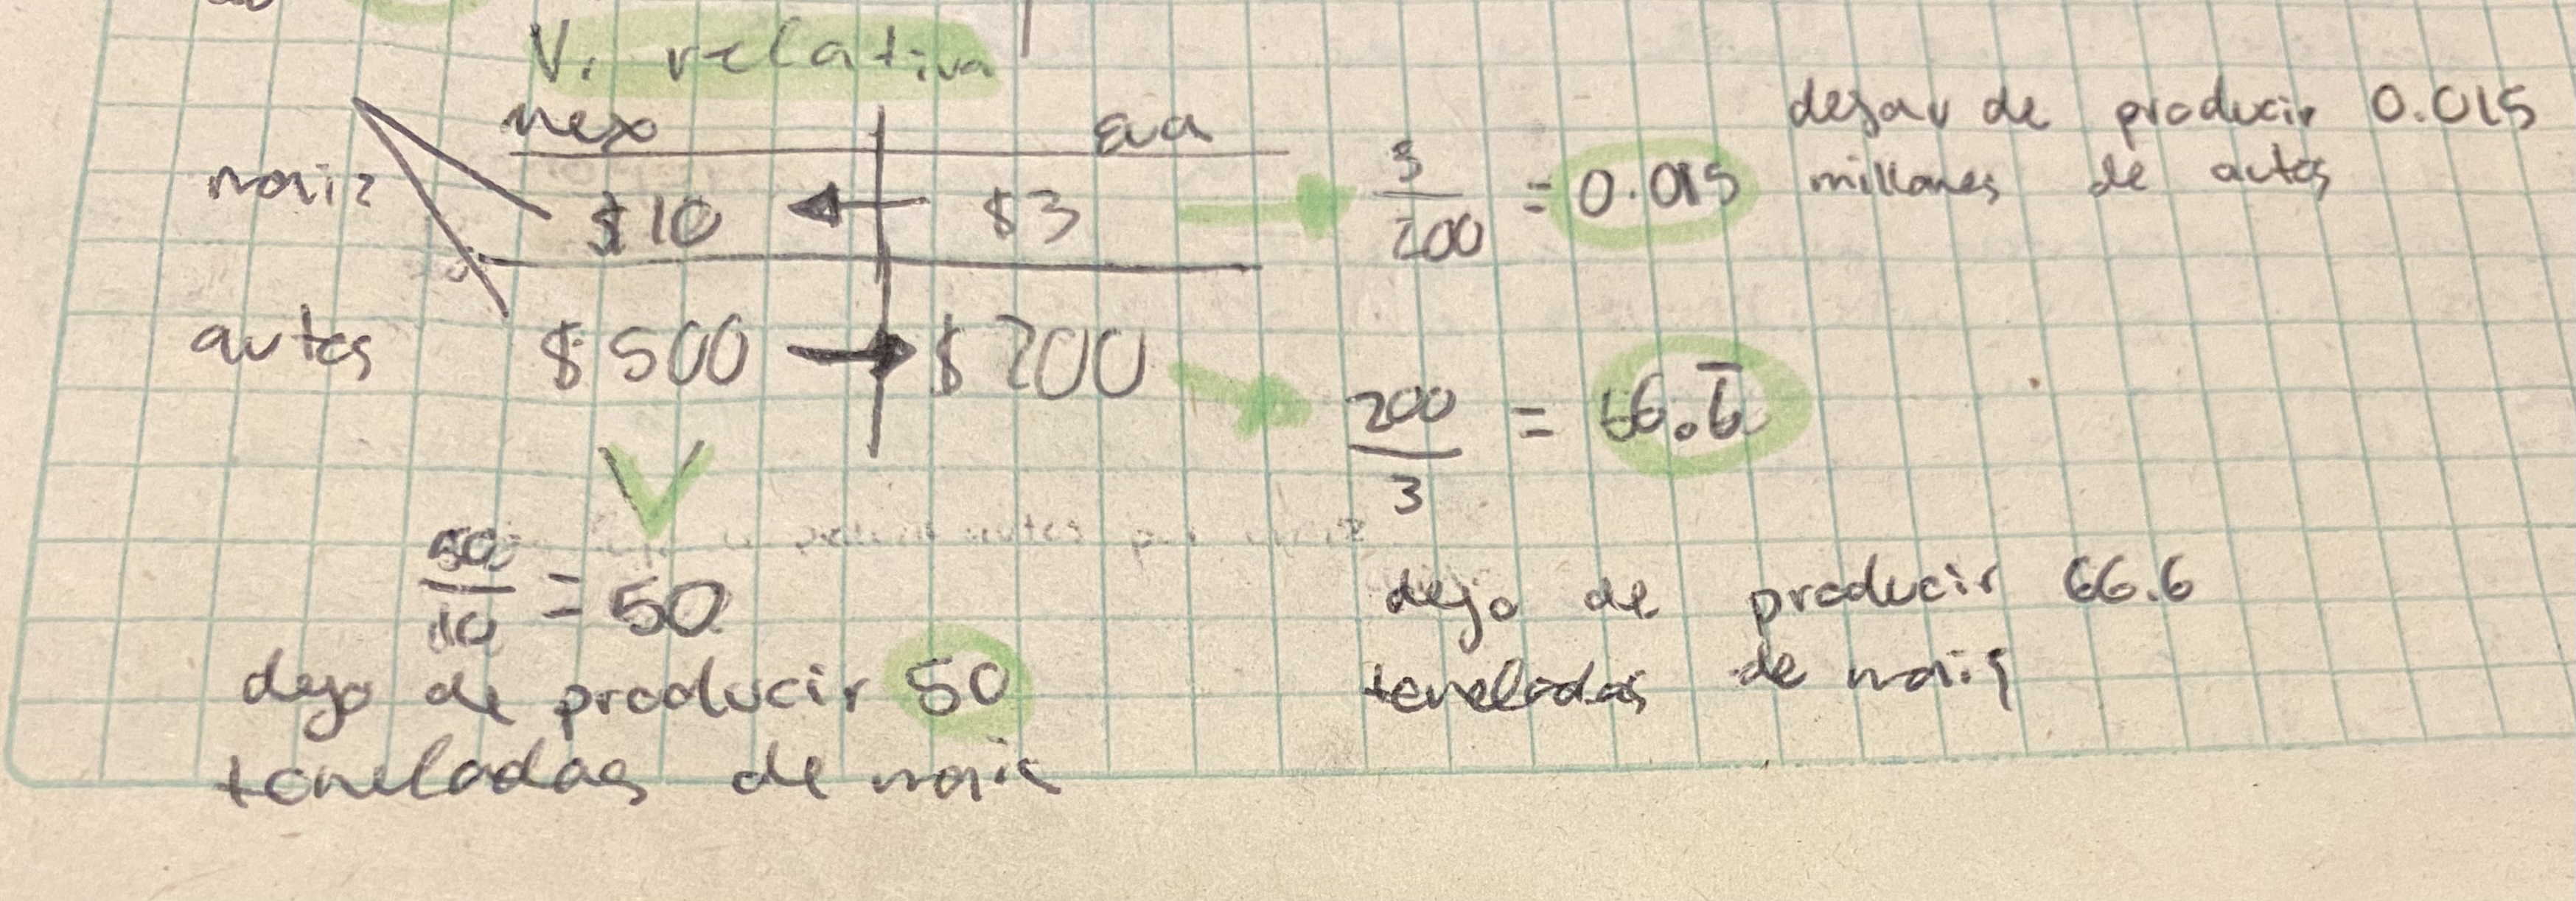 V. relativa
mex eua
maiz $10 $3
autos $500 $200
3/200 = 0.015
dejar de producir 0.015
millones de autos
200/3 = 66.6̅
dejo de producir 66.6
toneladas de maiz
500/10 = 50
dejo de producir 50
toneladas de maiz